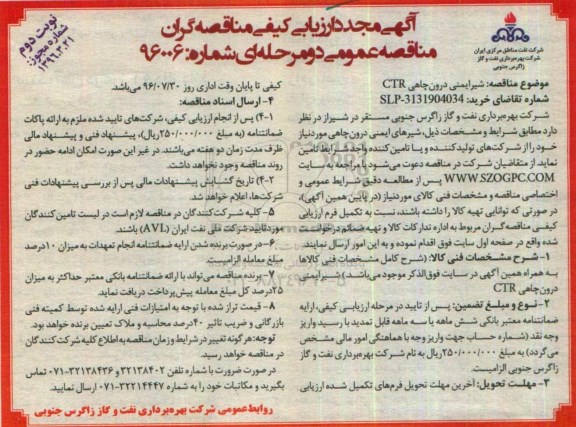 نوبت دوم
شماره مجوز:
۱۳۹۶.۳.۲۱
آگهی مجدد ارزیابی کیفی مناقصه گران
مناقصه عمومی دو مرحله‌ای شماره: ۹۶۰۰۶
شرکت نفت مناطق مرکزی ایران
شرکت بهره‌برداری نفت و گاز
زاگرس جنوبی
موضوع مناقصه: شیرایمنی درون‌چاهی CTR
شماره تقاضای خرید: SLP-3131904034
شرکت بهره‌برداری نفت و گاز زاگرس جنوبی مستقر در شیراز در نظر
دارد مطابق شرایط و مشخصات ذیل، شیرهای ایمنی درون‌چاهی مورد نیاز
خود را از شرکت‌های تولیدکننده و یا تامین کننده واجد شرایط تامین
نماید. از متقاضیان شرکت در مناقصه دعوت می‌شود با مراجعه به سایت
WWW.SZOGPC.COM پس از مطالعه دقیق شرایط عمومی و
اختصاصی مناقصه و مشخصات فنی کالای موردنیاز (در پایین همین آگهی)،
در صورتی که توانایی تهیه کالا را داشته باشند، نسبت به تکمیل فرم ارزیابی
کیفی مناقصه گران مربوط به اداره تدارکات کالا و تهیه ضمائم درخواست
شده واقع در صفحه اول سایت فوق اقدام نموده و به این امور ارسال نمایند.
۱- شرح مشخصات فنی کالا: (شرح کامل مشخصات فنی کالاها
به همراه همین آگهی در سایت فوق‌الذکر موجود می‌باشد) شیرایمنی
درون‌چاهی CTR
۲- نوع و مبلغ تضمین: پس از تایید در مرحله ارزیابی کیفی، ارایه
ضمانتنامه معتبر بانکی شش ماهه با سه ماهه قابل تمدید یا رسید واریز
وجه نقد (شماره حساب جهت واریز وجه با هماهنگی امور مالی مشخص
می‌گردد) به مبلغ ۲۵۰/۰۰۰/۰۰۰ ریال به نام شرکت بهره‌برداری نفت و گاز
زاگرس جنوبی الزامیست.
۳- مهلت تحویل: آخرین مهلت تحویل فرم‌های تکمیل شده ارزیابی
کیفی تا پایان وقت اداری روز ۹۶/۰۷/۳۰ می‌باشد.
۴- ارسال اسناد مناقصه:
۴-۱) پس از انجام ارزیابی کیفی، شرکت‌های تایید شده ملزم به ارائه پاکات
ضمانتنامه (به مبلغ ۲۵۰/۰۰۰/۰۰۰ ریال)، پیشنهاد فنی و پیشنهاد مالی
ظرف مدت زمان دو هفته می‌باشند. در غیر این صورت امکان ادامه حضور در
روند مناقصه وجود نخواهد داشت.
۴-۲) تاریخ گشایش پیشنهادات مالی پس از بررسی پیشنهادات فنی
شرکت‌ها، اعلام خواهد شد.
۵- کلیه شرکت کنندگان در مناقصه لازم است در لیست تامین کنندگان
مورد تایید شرکت ملی نفت ایران (AVL) باشند.
۶- در صورت برنده شدن ارایه ضمانتنامه انجام تعهدات به میزان ۱۰ درصد
مبلغ معامله الزامیست.
۷- برنده مناقصه می‌تواند با ارائه ضمانتنامه بانکی معتبر حداکثر به میزان
۲۵ درصد کل مبلغ معامله پیش‌پرداخت دریافت نماید.
۸- قیمت تراز شده با توجه به امتیازات فنی ارایه شده توسط کمیته فنی
بازرگانی و ضریب تاثیر ۴۰ درصد محاسبه و ملاک تعیین برنده خواهد بود.
توجه: هرگونه تغییر در شرایط و زمان مناقصه به اطلاع کلیه شرکت کنندگان
در مناقصه خواهد رسید.
در صورت ضرورت با شماره تلفن ۳۲۱۳۸۴۰۲ و ۳۲۱۳۸۴۳۶-۰۷۱ تماس
بگیرید و مکاتبات خود را به شماره ۳۲۲۱۴۴۴۷-۰۷۱ ارسال نمایید.
روابط عمومی شرکت بهره‌برداری نفت و گاز زاگرس جنوبی